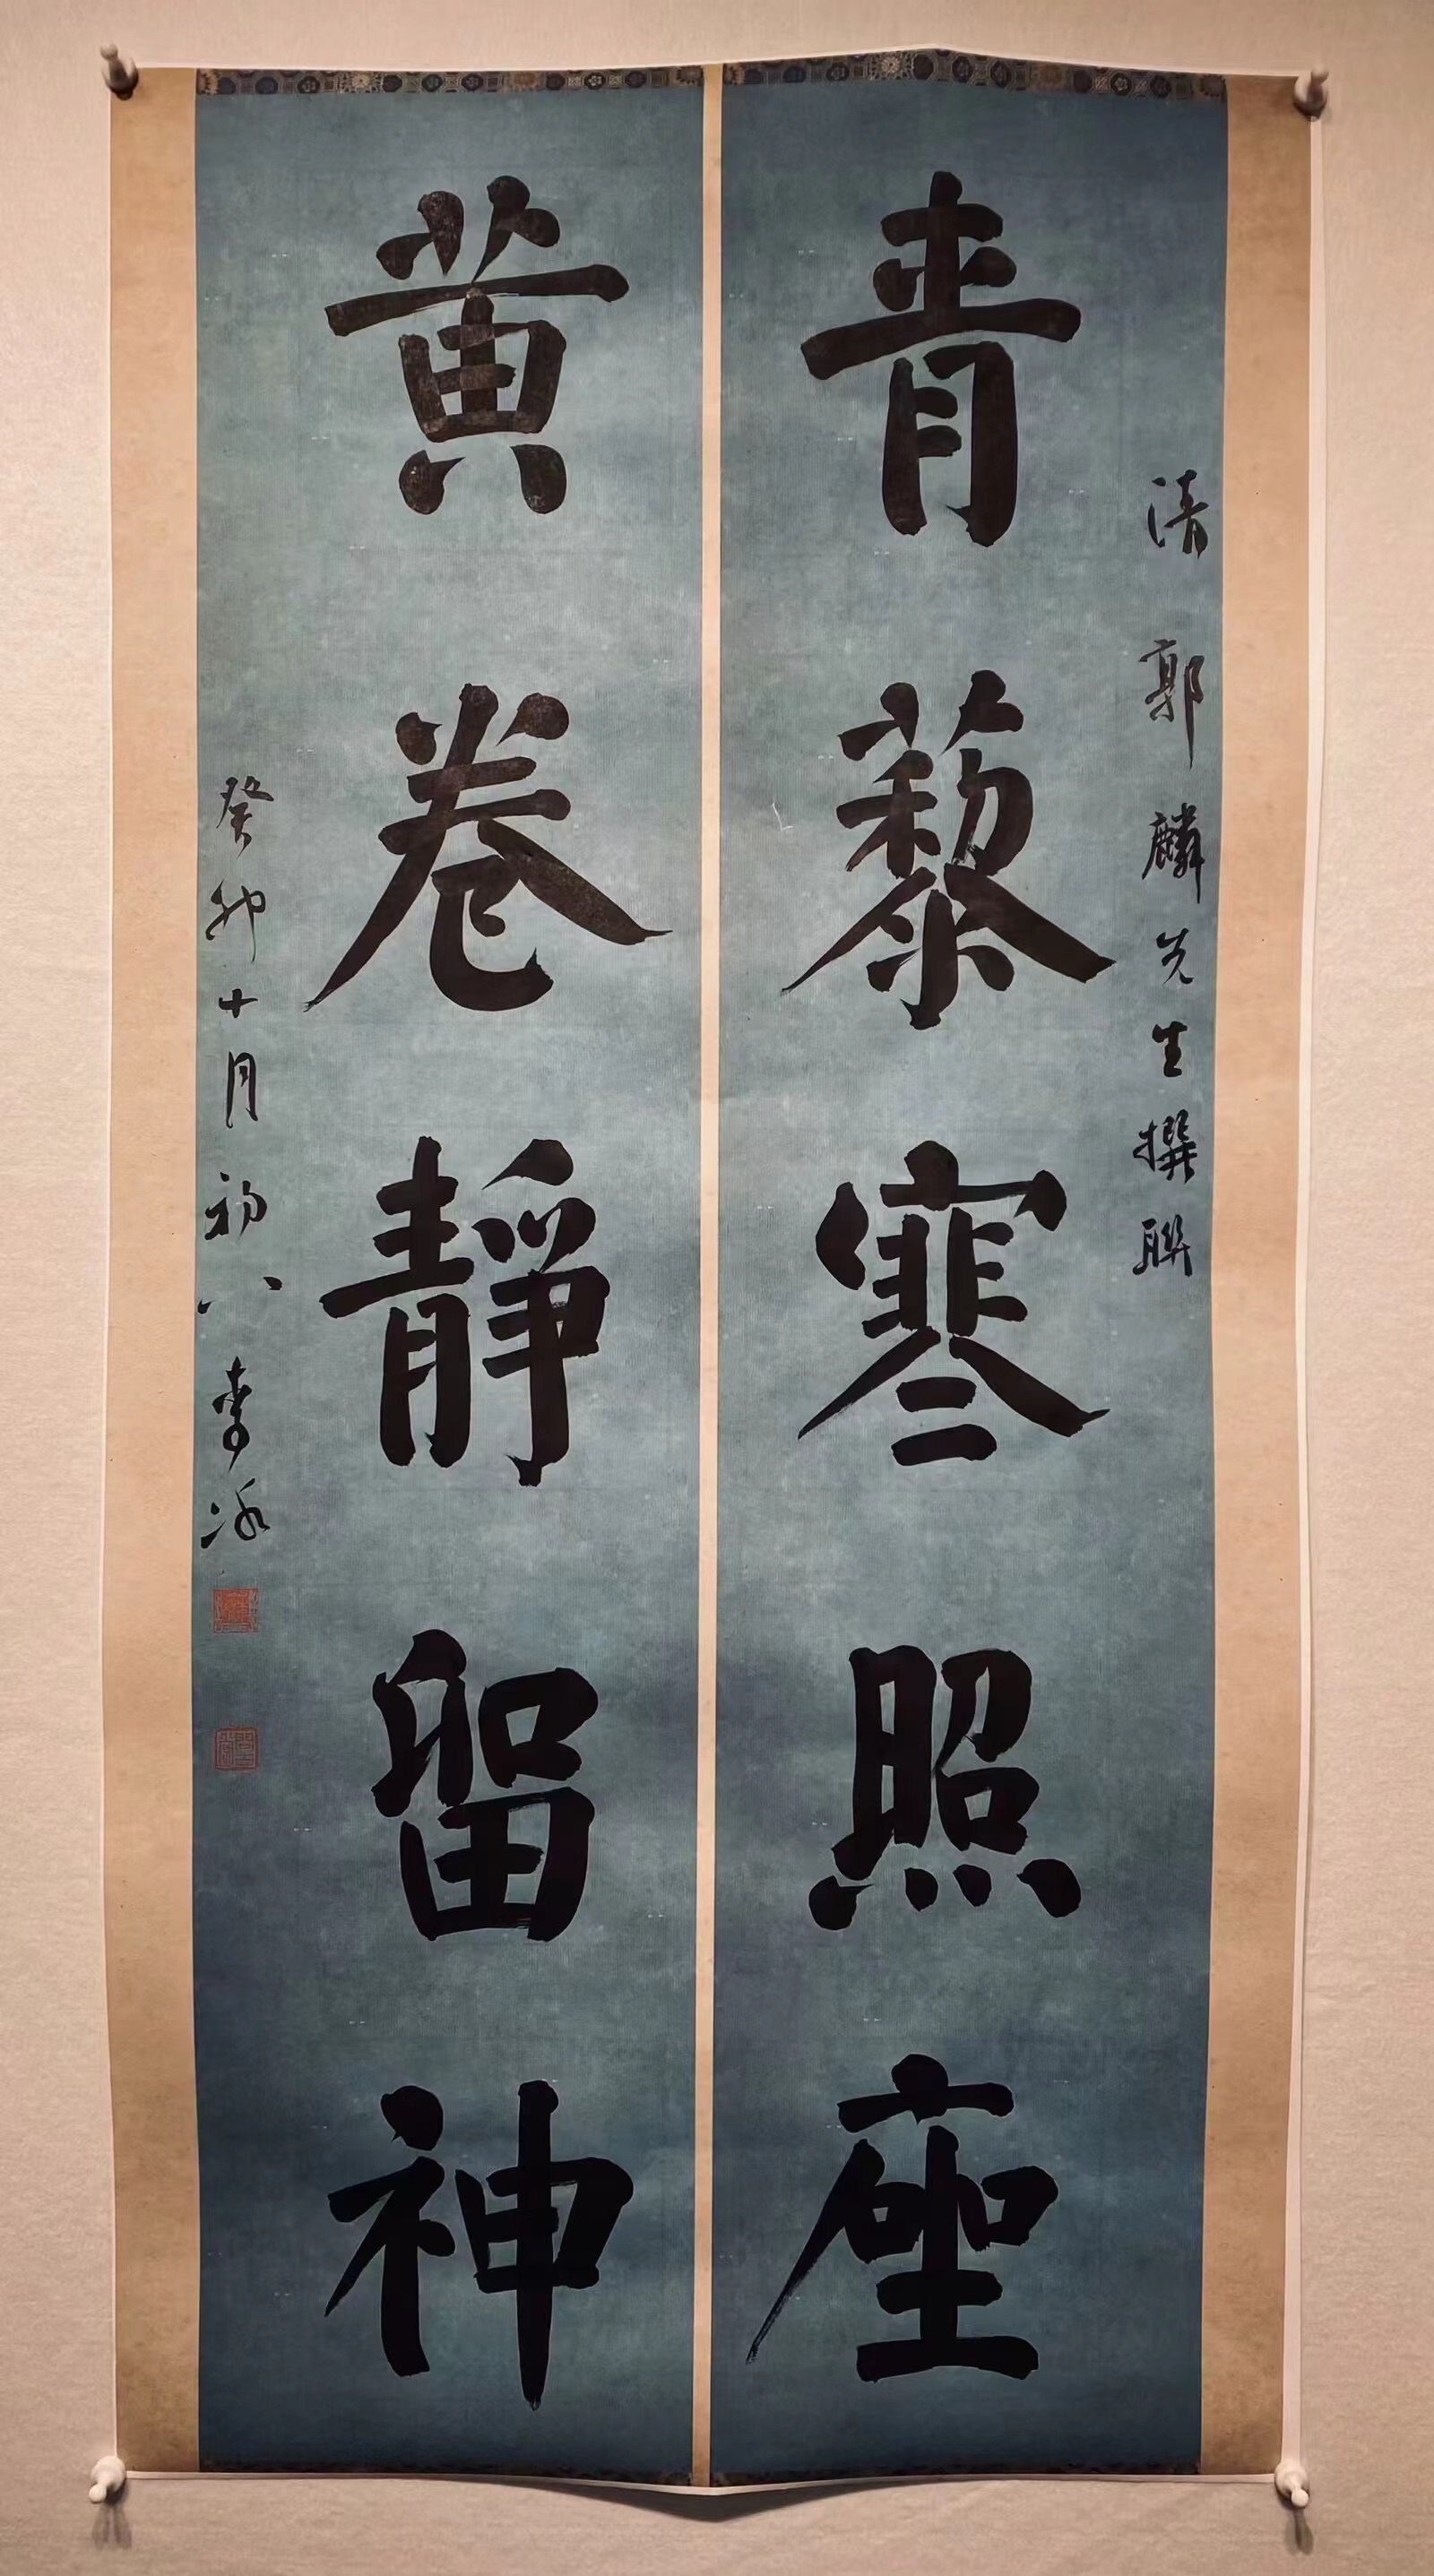 清郭麟先生撰聯
青藜寒照座
黄卷靜留神
癸卯十月初八李冰